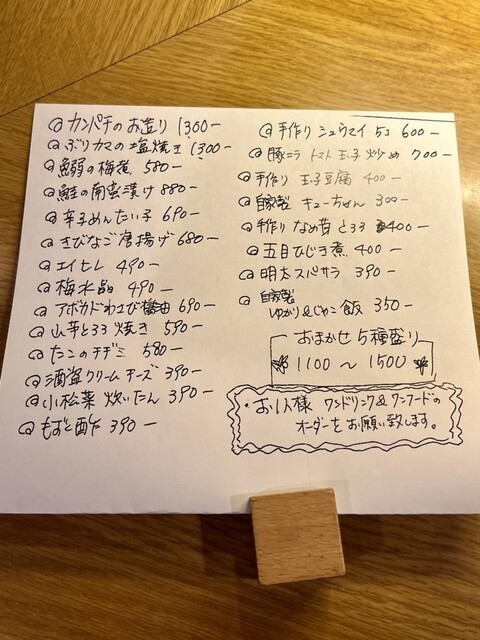 @ カンパチのお造り 1300-
@ ぶりカマの塩焼き 1300-
@ 鰯の梅煮 580-
@ 鮭の南蛮漬け 880-
@ 辛子めんたい子 690-
@ きびなご唐揚げ 680-
@ エイヒレ 490-
@ 梅水晶 490-
@ アボカドわさび醤油 690-
@ 山芋とろろ焼き 590-
@ たこのチヂミ 580-
@ 酒盗クリームチーズ 390-
@ 小松菜 炊いたん 390-
@ もずく酢 390-
@ 手作り シュウマイ 5コ 600-
@ 豚ニラ トマト 玉子 炒め 700-
@ 手作り 玉子豆腐 400-
@ 自家製 キューちゃん 300-
@ 手作り なめ茸 とろろ 400-
@ 五目ひじき煮 400-
@ 明太スパサラ 390-
@ 自家製
ゆかり&じゃこ飯 350-
おまかせ 5種盛り
1100 ~ 1500
・お1人様 ワンドリンク&ワンフードの
オーダーをお願い致します。